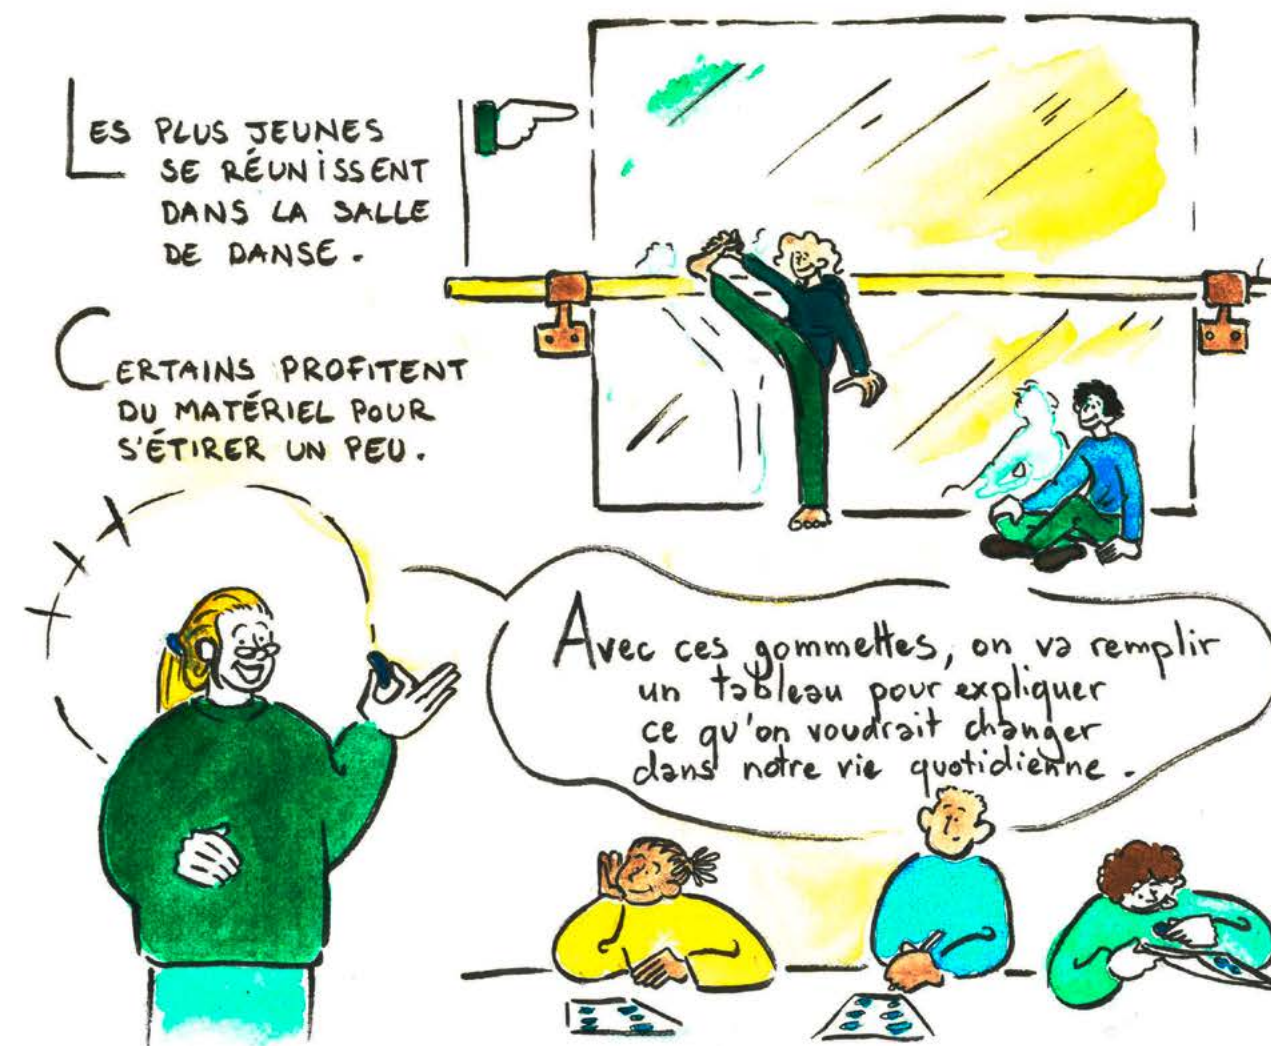 LES PLUS JEUNES
SE RÉUNISSENT
DANS LA SALLE
DE DANSE.
CERTAINS PROFITENT
DU MATÉRIEL POUR
S'ÉTIRER UN PEU.
Avec ces gommettes, on va remplir
un tableau pour expliquer
ce qu'on voudrait changer
dans notre vie quotidienne.